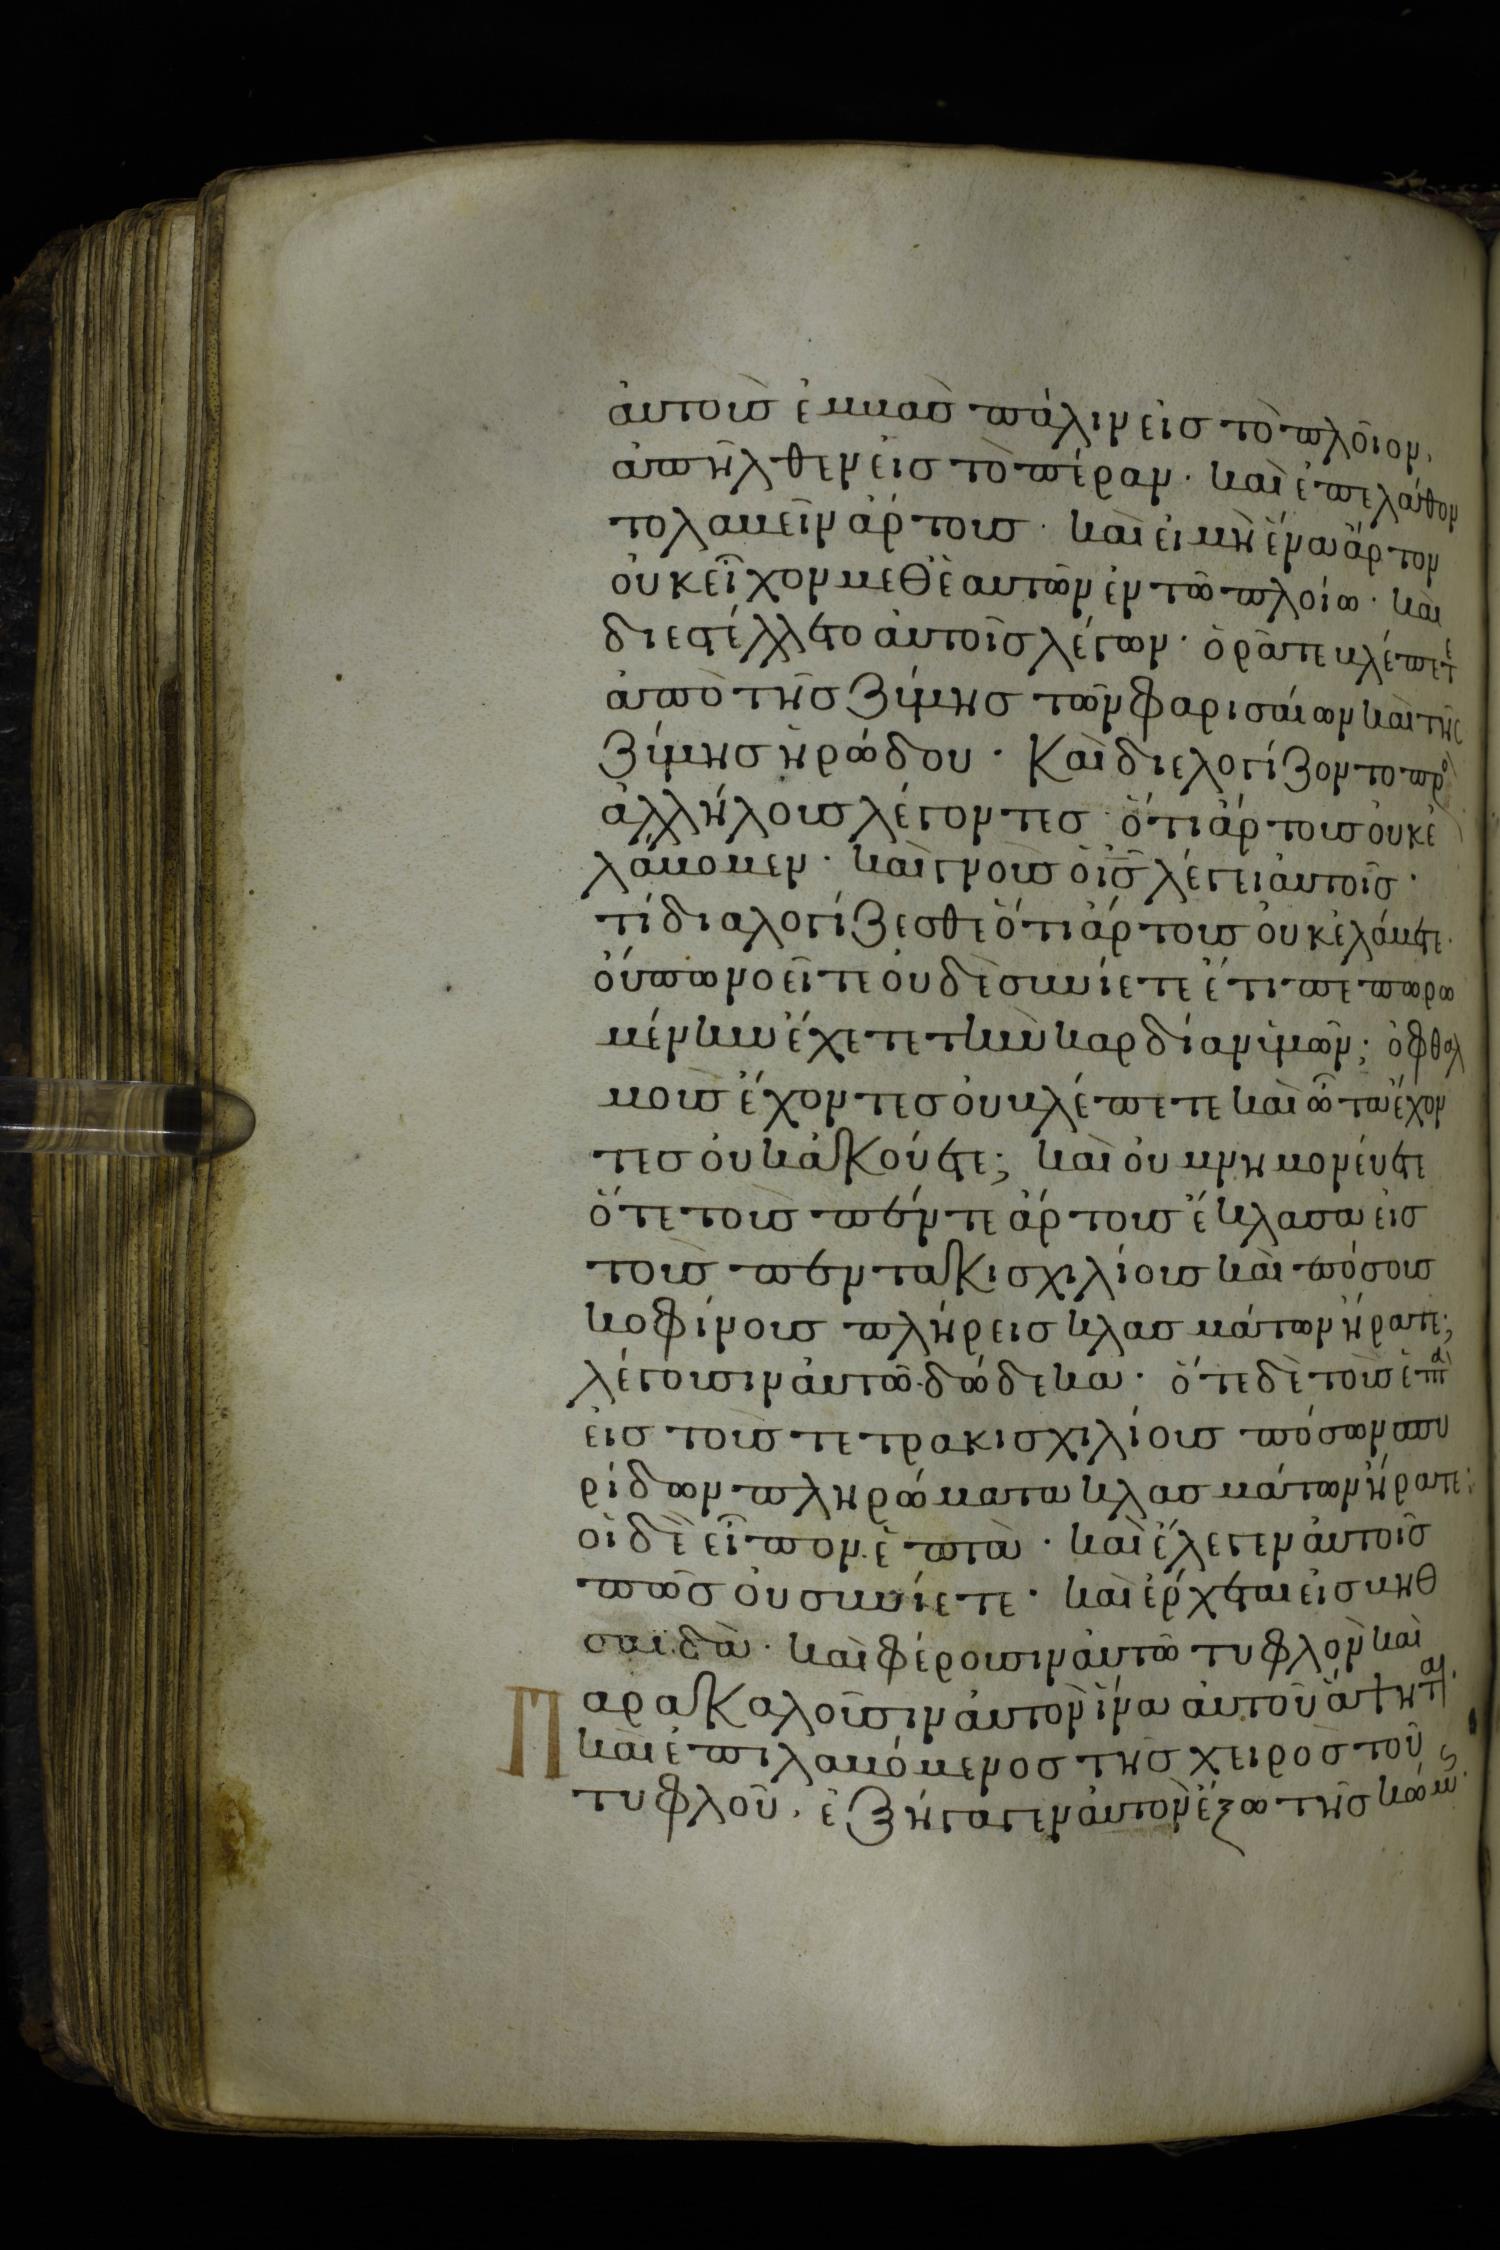 ἀυτοὺσ ἐμβὰσ πάλιν εἰσ τὸ πλοῖον,
ἀπῆλθεν εἰσ τὸ πέραν· καὶ ἐπελάθον
το λαβεῖν ἄρτουσ· καὶ εἰ μὴ ἕνα ἄρτον
ὀυκ εἶχον μεθ ἑαυτῶν ἐν τῶ πλοίω· καὶ
διεστέλλετο ἀυτοῖσ λέγων· ὁρᾶτε βλέπετε
ἀπὸ τῆσ ζύμησ τῶν φαρισαίων καὶ τῆσ
ζύμησ ἡρώδου· Καὶ διελογίζοντο πρὸ
ἀλλήλουσ λέγοντεσ· ὅτι ἄρτουσ ὀυκ ἐ
λάβομεν· καὶ γνοὺσ ὁ ἰσ λέγει ἀυτοῖσ·
τί διαλογίζεσθε ὅτι ἄρτουσ ὀυκ ἐλάβετε·
ὄυπω νοεῖτε ὀυδὲ συνίετε ἔτι πεπωρω
μένην ἔχετε τὴν καρδίαν ὑμῶν; ὀφθαλ
μοὺσ ἔχοντεσ ὀυ βλέπετε καὶ ὦτα ἔχον
τεσ ὀυκ ἀκούετε; καὶ ὀυ μνημονέυετε
ὅτε τοὺσ πέντε ἄρτουσ ἔκλασα εἰσ
τοὺσ πεντακισχιλίουσ καὶ πόσουσ
κοφίνουσ πλήρεισ κλασμάτων ἤρατε;
λέγουσιν ἀυτῶ· δώδεκα· ὅτε δὲ τοὺσ ἑπτὰ
εἰσ τοὺσ τετρακισχιλίουσ πόσων σπυ
ρίδων πληρώματα κλασμάτων ἤρατε;
οἱ δὲ εἶπον· ἑπτὰ· καὶ ἔλεγεν ἀυτοῖσ
πῶσ ὀυ συνίετε· καὶ ἔρχεται εἰσ βηθ
σαϊδὰ· καὶ φέρουσιν ἀυτῶ τυφλὸν καὶ
Παρακαλοῦσιν ἀυτὸν ἵνα ἀυτοῦ ἅψηται·
καὶ ἐπιλαβόμενοσ τῆσ χειρὸσ τοῦ
τυφλοῦ, ἐξήγαγεν ἀυτὸν ἔξω τῆσ κώμησ·